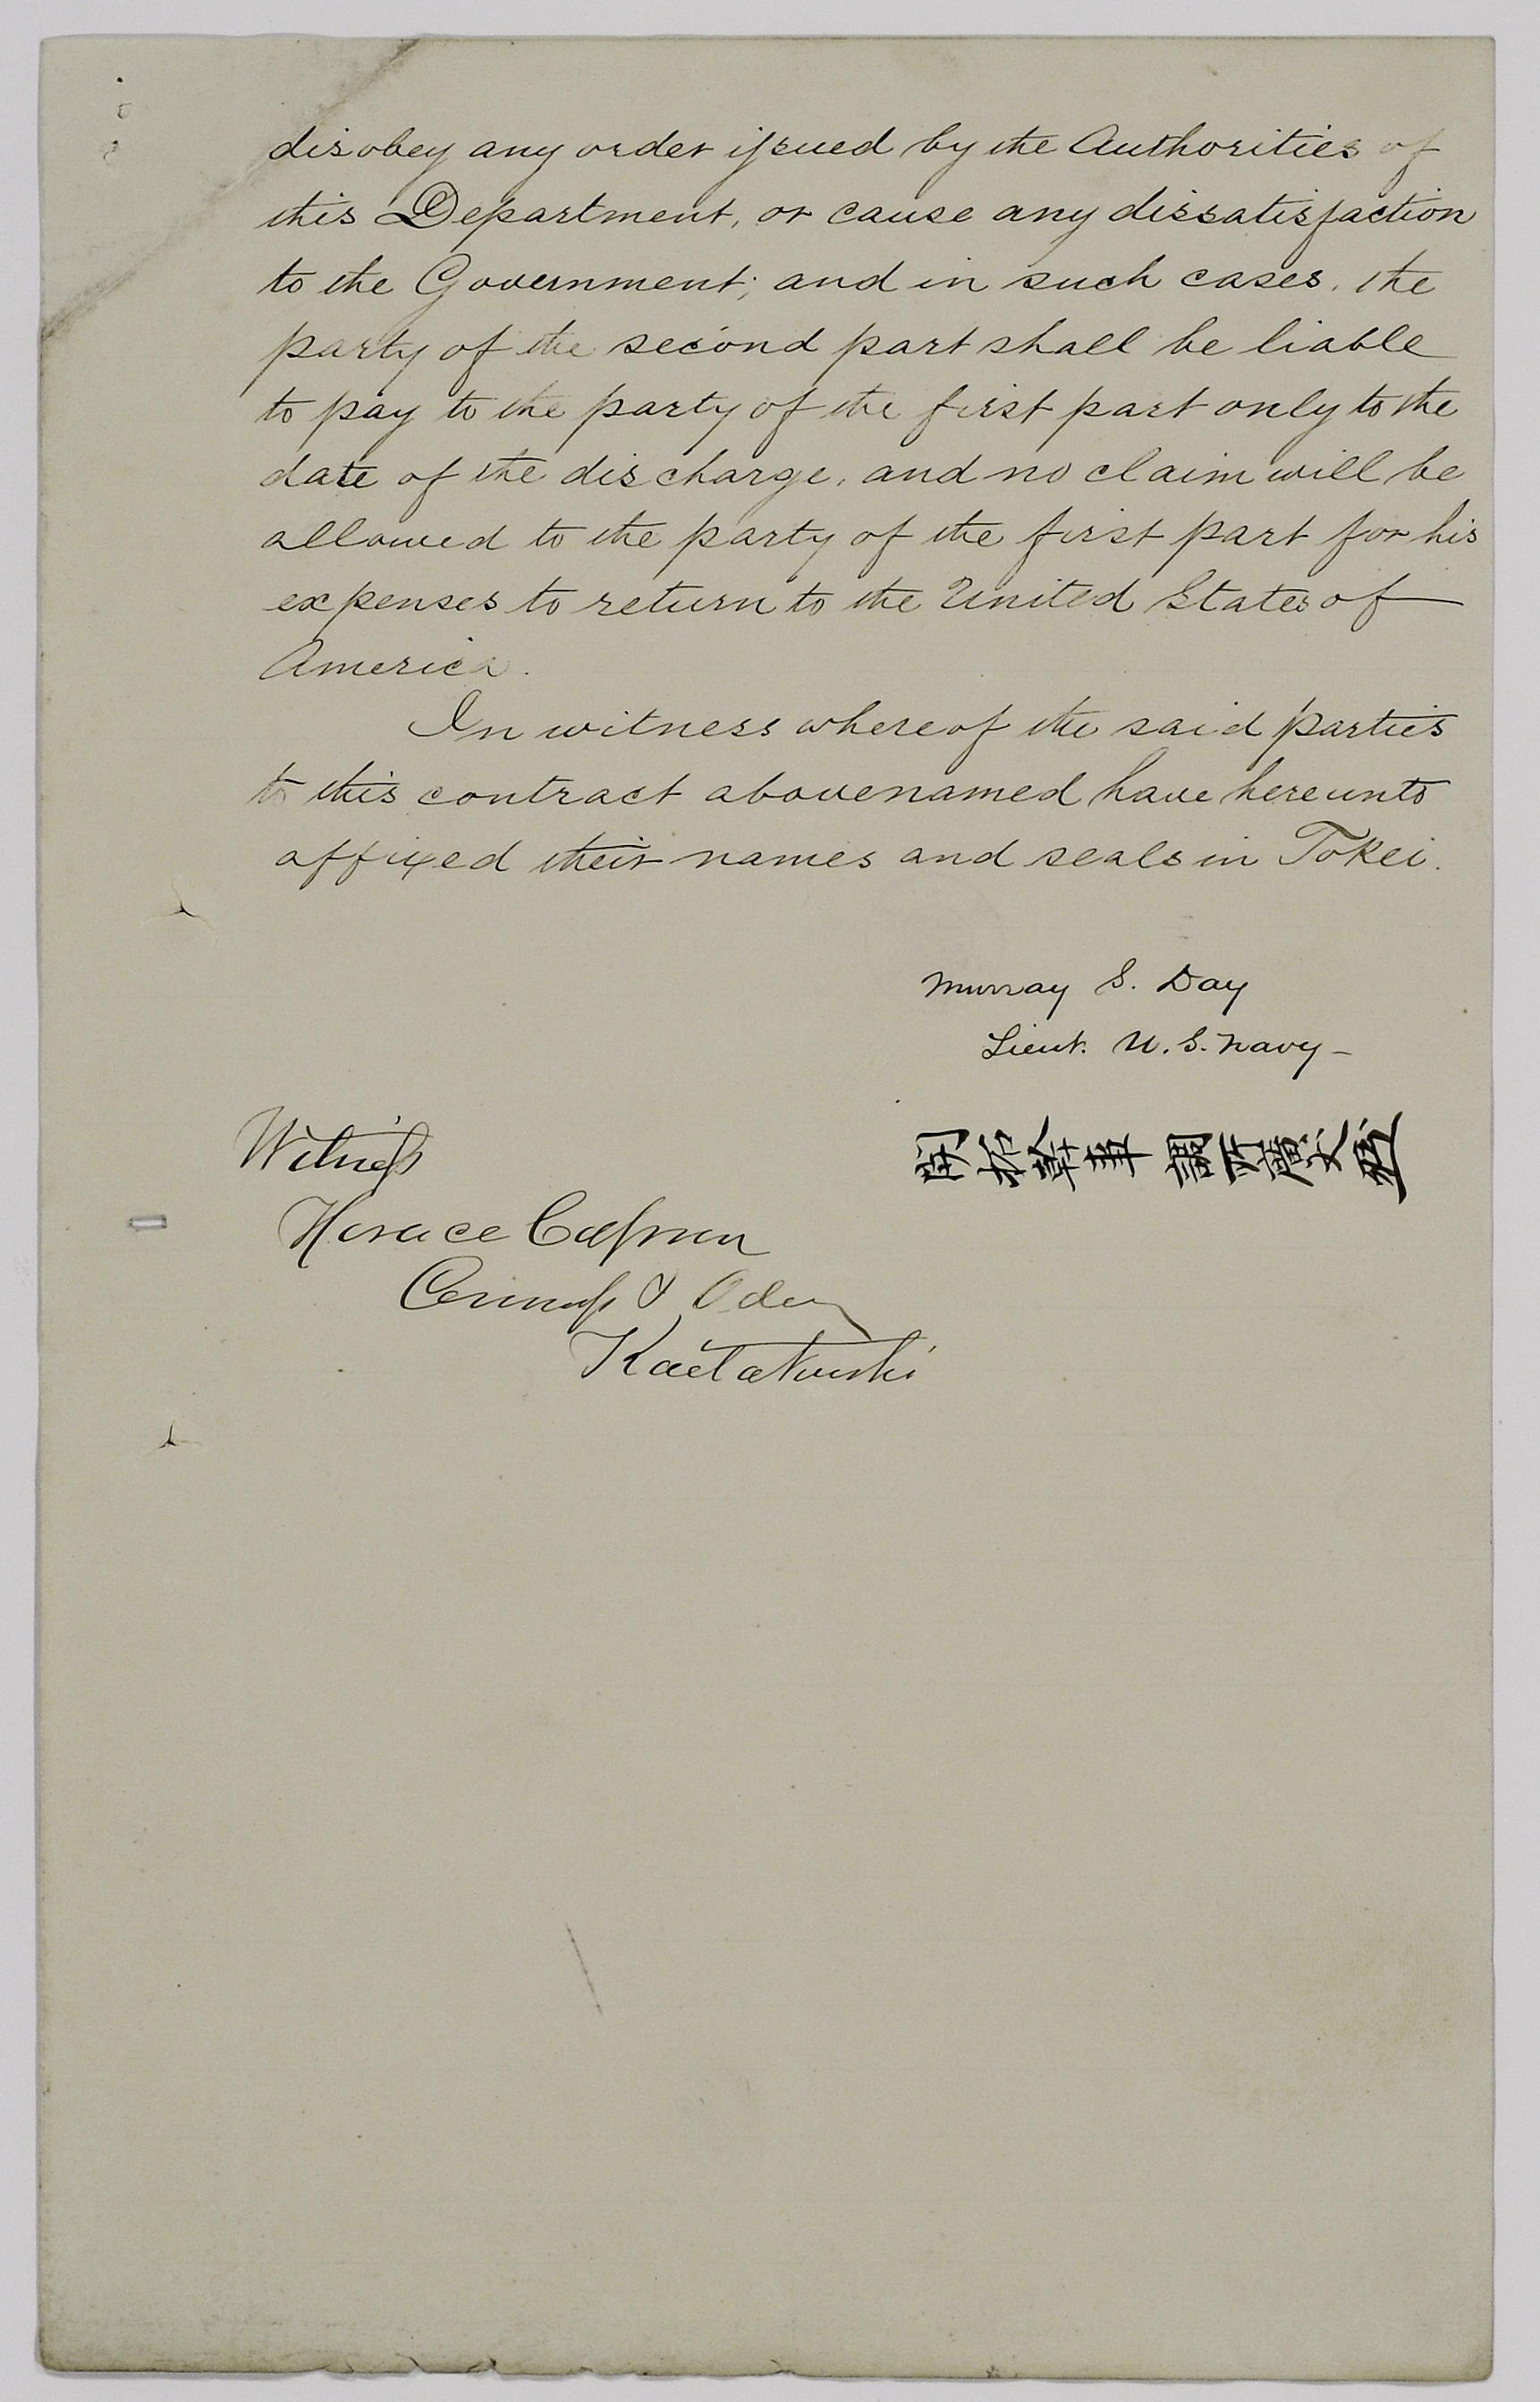 disobey any order issued by the Authorities of
this Department, or cause any dissatisfaction
to the Government; and in such cases, the
party of the second part shall be liable
to pay to the party of the first part only to the
date of the discharge, and no claim will be
allowed to the party of the first part for his
expenses to return to the United States of
America.
In witness whereof the said parties
to this contract abovenamed have hereunto
affixed their names and seals in Tokei.
Murray S. Day
Lieut. U.S. Navy—
開拓幹事 調所廣丈
Witness
Horace Capron
Commss & 
Kaitakushi